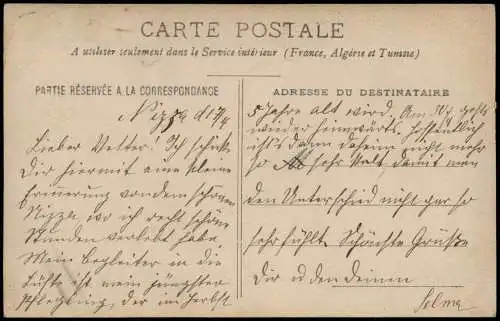 CARTE POSTALE
A utiliser seulement dans le Service intérieur (France, Algérie et Tunisie)
PARTIE RÉSERVÉE A LA CORRESPONDANCE
ADRESSE DU DESTINATAIRE
Nizza d.
Lieber Vetter! Ich schicke
Dir hiermit eine kleine
Erinnerung von dem schönen
Nizza, wo ich recht schöne
Stunden verlebt habe.
Mein Begleiter in die
Lüfte ist mein jüngster
Pflegling, der im Herbst
5 Jahre alt wird. Am geht's
wieder heimwärts. Hoffentlich
ist's dann daheim nicht mehr
so sehr kalt, damit man
den Unterschied nicht gar so
sehr fühlt. Schönste Grüße
Dir u den deinen
Selma